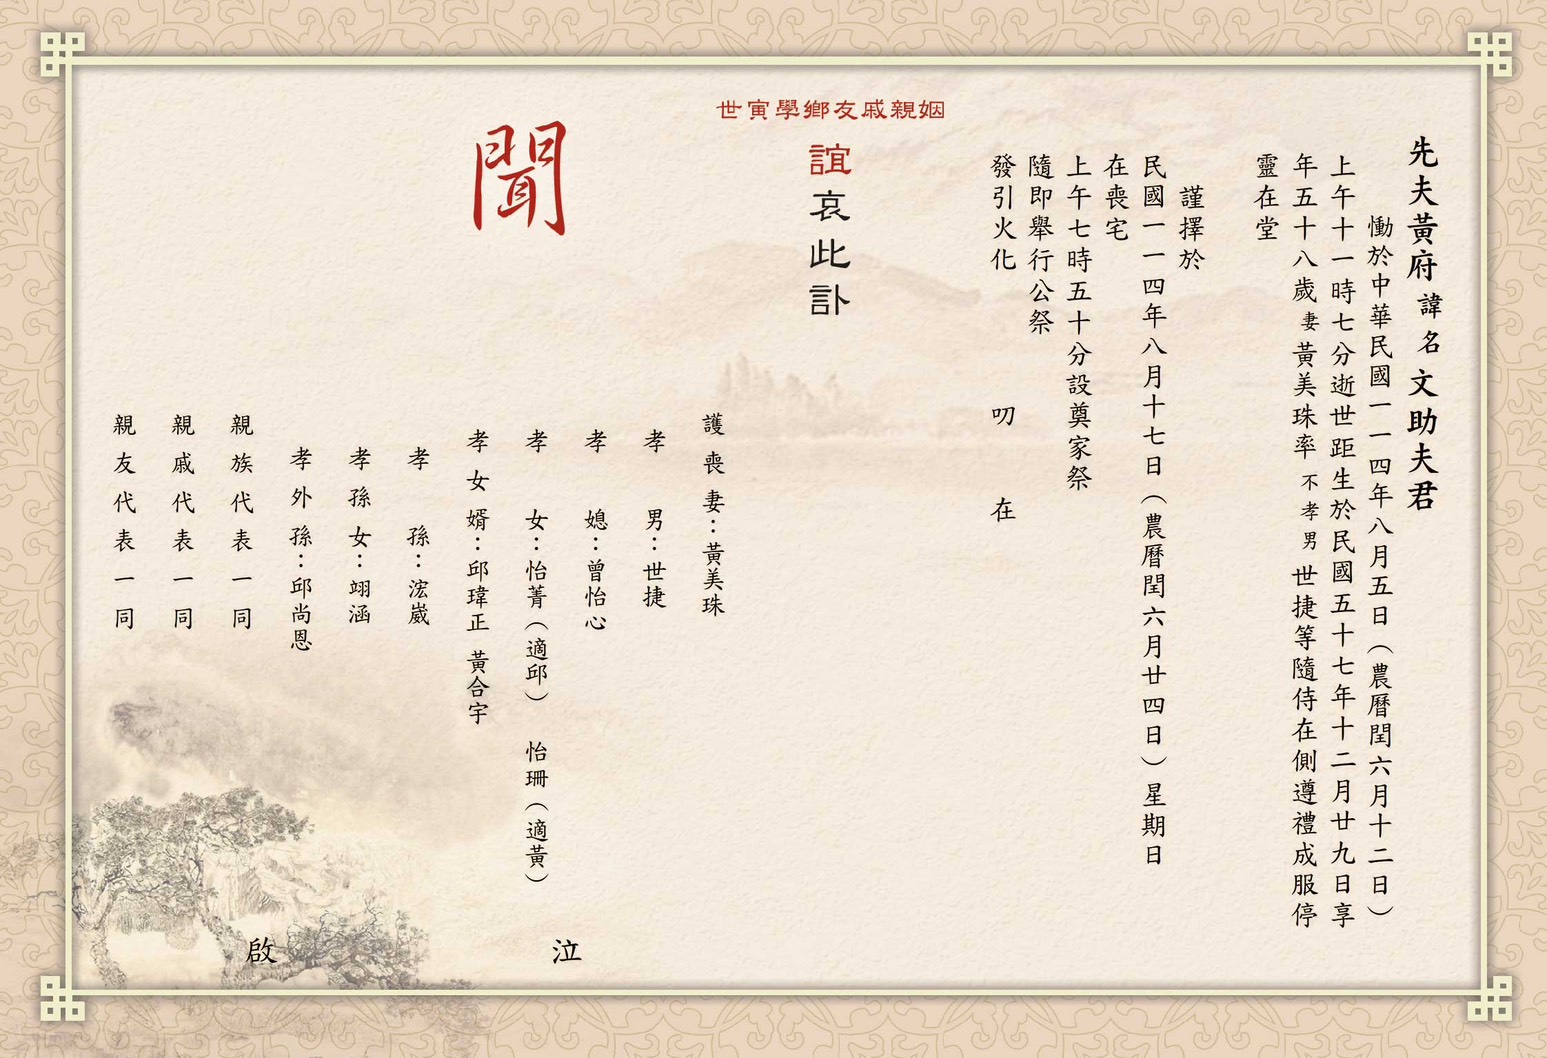 先夫黃府諱名文助夫君
慟於中華民國一一四年八月五日（農曆閏六月十二日）
上午十一時七分逝世距生於民國五十七年十二月廿九日享
年五十八歲妻黃美珠率不孝男世捷等隨侍在側遵禮成服停
靈在堂
謹擇於
民國一一四年八月十七日（農曆閏六月廿四日）星期日
在喪宅
上午七時五十分設奠家祭
隨即舉行公祭
發引火化 叨 在
姻親戚友鄉學寅世
誼哀此訃
聞
護喪妻：黃美珠
孝男：世捷
孝媳：曾怡心
孝女：怡菁（適邱） 怡珊（適黃）
孝女婿：邱瑋正 黃合宇
孝孫：浤崴
孝孫女：翊涵
孝外孫：邱尚恩
親族代表一同
親戚代表一同
親友代表一同
泣
啟